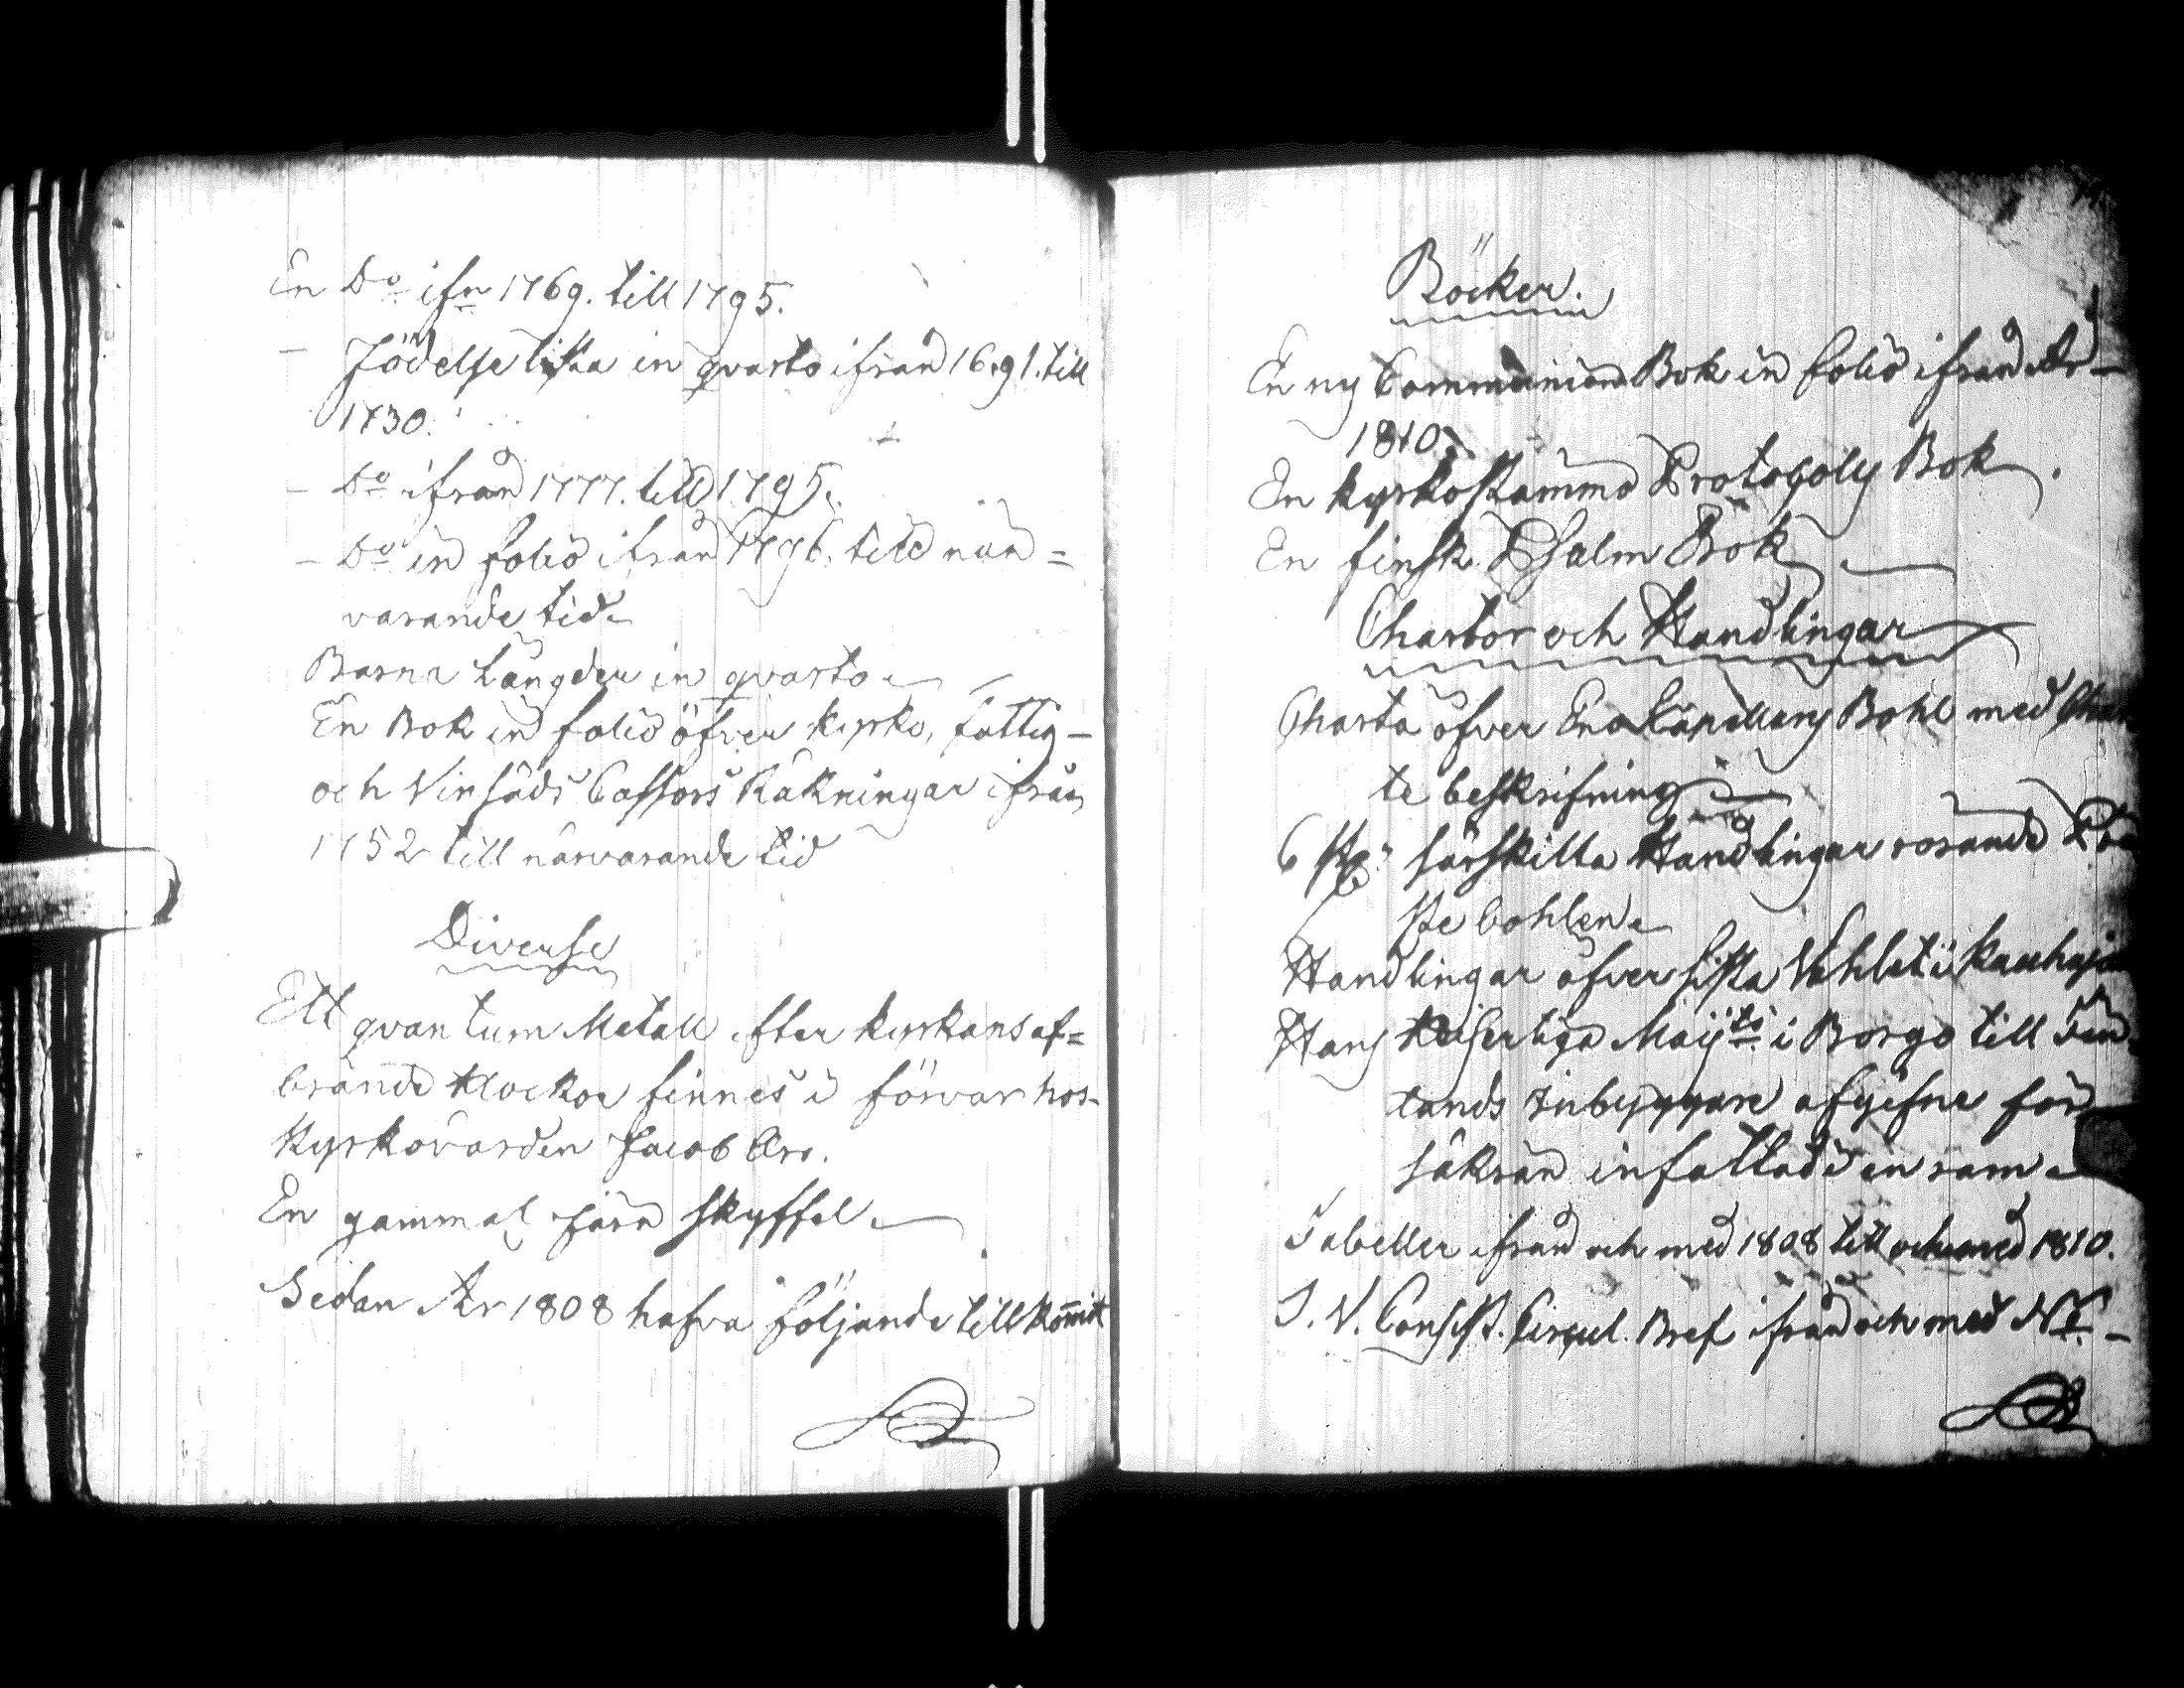 En Do ifn 1769. till 1795.
— Födelse lista in qvarto ifrån 1691. till
1730.
— Do ifrån 1777. till 1795.
— Do in folio ifrån 1796. till när=
varande tid
Barna Längder in qvarto
En Bok in folio öfver kyrko, fattig—
och Vinsäds Cassors Räkningar ifrån
1752 till närvarande tid
Diverse
Ett qvantum Metall efter kyrkans af=
brände klockor finnes i förvar hos
Kyrkovärden Jacob
En gammal järn skyffel
Sedan År 1808 hafva följande tillkomit
Böcker.
En ny Communion Bok in folio ifrån År—
1810.
En kyrkostämmo Protocolls Bok.
En finsk Psalm Bok
Chartor och Handlingar
Charta öfver Capellans Bohl med Char
te beskrifning
6 st. särskilta Handlingar rörande Pre
ste bohlen
Handlingar öfver sista Vahlet i
Hans Keiserliga Maijts i Borgo till Fin
lands Inbyggare afgifne för
säkran infattad i en ram
Tabeller ifrån och med 1808 till och med 1810.
S. V. Consist. Circul. Bref ifrån och med No —